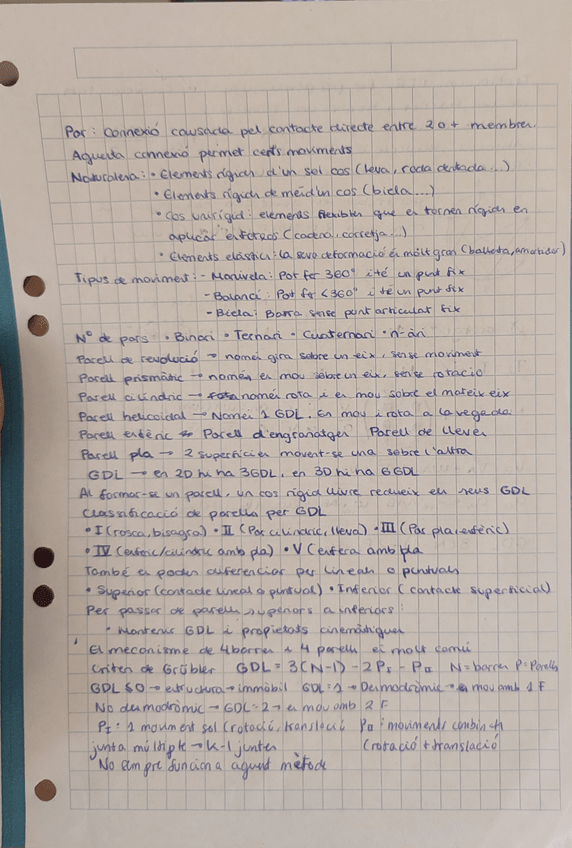 Par: Connexió causada pel contacte directe entre 2 o + membres.
Aquesta connexió permet certs moviments
Naturalesa: • Elements rígids d'un sol cos (leva, roda dentada...)
• Elements rígids de més d'un cos (biela...)
• Cos unirígid: elements flexibles que es tornen rígids en
aplicar esforços (cadena, corretja...)
• Elements elàstics: la seva deformació és molt gran (ballesta, amortidor)
Tipus de moviment: - Manivela: Pot fer 360° i té un punt fix
- Balancí: Pot fer <360° i té un punt fix
- Biela: Barra sense punt articulat fix
Nº de pars: • Binari • Ternari • Cuaternari • n-ari
Parell de revolució → només gira sobre un eix, sense moviment
Parell prismàtic → només es mou sobre un eix, sense rotació
Parell cilíndric → només rota i es mou sobre el mateix eix
Parell helicoidal → Només 1 GDL: es mou i rota a la vegada
Parell esfèric Parell d'engranatges Parell de lleves
Parell pla → 2 superfícies movent-se una sobre l'altra
GDL → en 2D hi ha 3GDL, en 3D hi ha 6 GDL
Al formar-se un parell, un cos rígid lliure redueix els seus GDL
Classificació de parells per GDL
• I (rosca, bisagra) • II (Par cilíndric, lleva) • III (Par pla i esfèric)
• IV (esfèric/cilíndric amb pla) • V (esfera amb pla
També es poden diferenciar per lineals o puntuals
• Superior (contacte lineal o puntual) • Inferior (contacte superficial)
Per passar de parells superiors a inferiors:
• Mantenir GDL i propietats cinemàtiques
El mecanisme de 4 barres i 4 parells és molt comú
Criteri de Grübler GDL = 3(N-1) - 2P_I - P_II N= barres P= Parells
GDL ≤ 0 → estructura → immòbil GDL = 1 → Desmodròmic → es mou amb 1 F
No desmodròmic → GDL = 2 → es mou amb 2 F
P_I: 1 moviment sol (rotació, translació P_II: moviments combinats
junta múltiple → k-1 juntes (rotació + translació
No sempre funciona aquest mètode